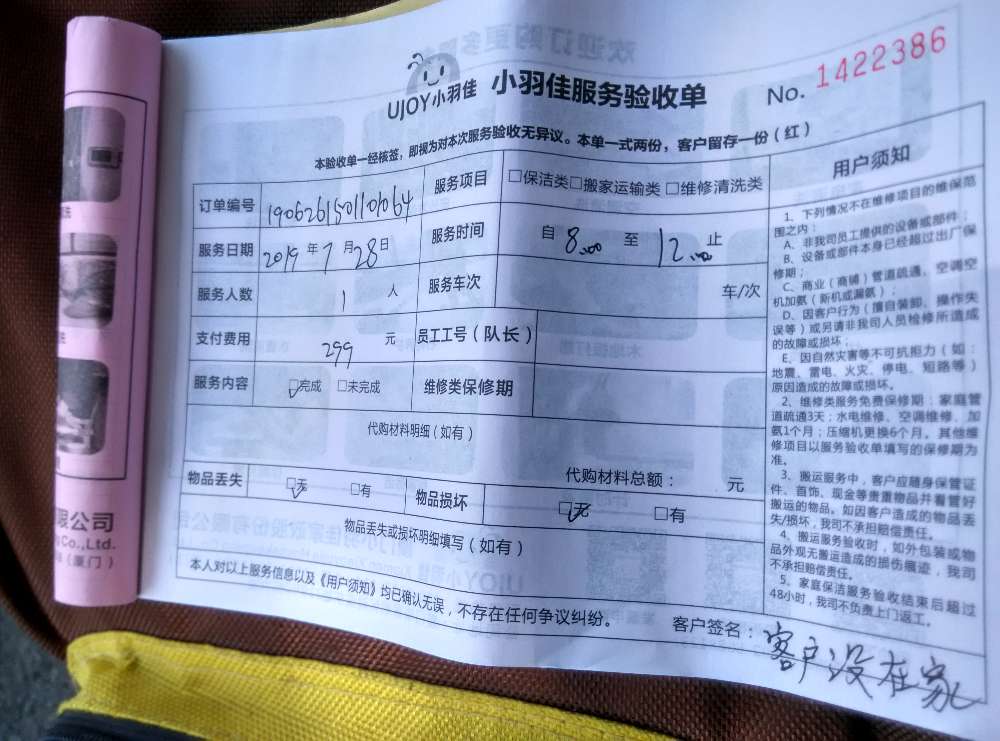 UJOY小羽佳 小羽佳服务验收单 No. 1422386
本验收单一经核签，即视为对本次服务验收无异议。本单一式两份，客户留存一份（红）
订单编号 1906261501101064 服务项目 □保洁类□搬家运输类 □维修清洗类
服务日期 2019年7月28日 服务时间 自 8:00 至 12:00 止
服务人数 1 人 服务车次 车/次
支付费用 299 元 员工工号（队长）
服务内容 □完成 □未完成 维修类保修期
代购材料明细（如有）
代购材料总额： 元
物品丢失 □无 □有 物品损坏 □无 □有
物品丢失或损坏明细填写（如有）
本人对以上服务信息以及《用户须知》均已确认无误，不存在任何争议纠纷。
客户签名：客户没在家
用户须知
1、下列情况不在维修项目的维保范
围之内：
A、非我司员工提供的设备或部件；
B、设备或部件本身已经超过出厂保
修期；
C、商业（商铺）管道疏通、空调空
机加氨（新机或漏氨）；
D、因客户行为（擅自装卸、操作失
误等）或另请非我司人员检修所造成
的故障或损坏；
E、因自然灾害等不可抗拒力（如：
地震、雷电、火灾、停电、短路等）
原因造成的故障或损坏。
2、维修类服务免费保修期：家庭管
道疏通3天；水电维修、空调维修、加
氨1个月；压缩机更换6个月。其他维
修项目以服务验收单填写的保修期为
准。
3、搬运服务中，客户应随身保管证
件、首饰、现金等贵重物品并看管好
搬运的物品。如因客户造成的物品丢
失/损坏，我司不承担赔偿责任。
4、搬运服务验收时，如外包装或物
品外观无搬运造成的损伤痕迹，我司
不承担赔偿责任。
5、家庭保洁服务验收结束后超过
48小时，我司不负责上门返工。
限公司
Co.,Ltd.
（厦门）